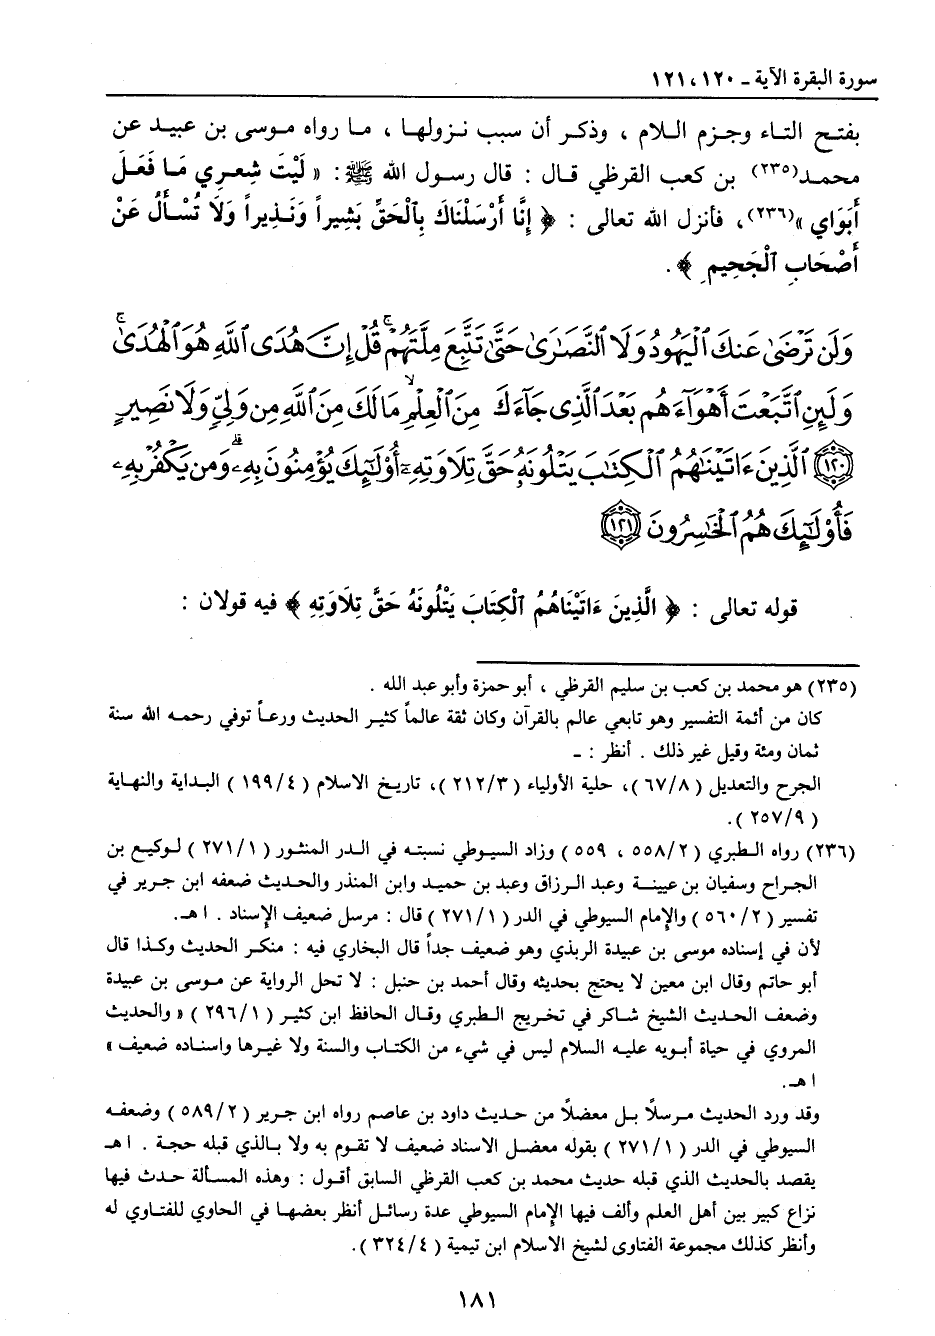 سورة البقرة الآية ـ ١٢٠، ١٢١
بفتح التاء وجزم اللام ، وذكر أن سبب نزولها ، ما رواه موسى بن عبيد عن
محمد(٢٣٥) بن كعب القرظي قال : قال رسول الله ﷺ : « لَيْتَ شِعرِي مَا فَعَلَ
أَبَوَاي »(٢٣٦)، فأنزل الله تعالى : ﴿ إِنَّا أَرْسَلْنَاكَ بِالْحَقِّ بَشِيراً وَنَذِيراً وَلَا تُسْأَلُ عَنْ
أَصْحَابِ الْجَحِيمِ ﴾ .
وَلَن تَرْضَىٰ عَنكَ ٱلْيَهُودُ وَلَا ٱلنَّصَـٰرَىٰ حَتَّىٰ تَتَّبِعَ مِلَّتَهُمْ ۗ قُلْ إِنَّ هُدَى ٱللَّهِ هُوَ ٱلْهُدَىٰ ۗ
وَلَئِنِ ٱتَّبَعْتَ أَهْوَآءَهُم بَعْدَ ٱلَّذِى جَآءَكَ مِنَ ٱلْعِلْمِ ۙ مَا لَكَ مِنَ ٱللَّهِ مِن وَلِىٍّ وَلَا نَصِيرٍ
١٢٠ ٱلَّذِينَ ءَاتَيْنَـٰهُمُ ٱلْكِتَـٰبَ يَتْلُونَهُۥ حَقَّ تِلَاوَتِهِۦٓ أُو۟لَـٰٓئِكَ يُؤْمِنُونَ بِهِۦ ۗ وَمَن يَكْفُرْ بِهِۦ
فَأُو۟لَـٰٓئِكَ هُمُ ٱلْخَـٰسِرُونَ ١٢١
قوله تعالى : ﴿ الَّذِينَ ءَاتَيْنَاهُمُ الْكِتَابَ يَتْلُونَهُ حَقَّ تِلَاوَتِهِ ﴾ فيه قولان :
(٢٣٥) هو محمد بن كعب بن سليم القرظي ، أبو حمزة وأبو عبد الله .
كان من أئمة التفسير وهو تابعي عالم بالقرآن وكان ثقة عالماً كثير الحديث ورعاً توفي رحمه الله سنة
ثمان ومئة وقيل غير ذلك . أنظر : ـ
الجرح والتعديل ( ٨/٦٧ )، حلية الأولياء ( ٣/٢١٢ )، تاريخ الاسلام ( ٤/١٩٩ ) البداية والنهاية
( ٩/٢٥٧ ).
(٢٣٦) رواه الطبري ( ٢/٥٥٨ ، ٥٥٩ ) وزاد السيوطي نسبته في الدر المنثور ( ١/٢٧١ ) لوكيع بن
الجراح وسفيان بن عيينة وعبد الرزاق وعبد بن حميد وابن المنذر والحديث ضعفه ابن جرير في
تفسير ( ٢/٥٦٠ ) والإمام السيوطي في الدر ( ١/٢٧١ ) قال : مرسل ضعيف الإسناد . ا هـ.
لأن في إسناده موسى بن عبيدة الربذي وهو ضعيف جداً قال البخاري فيه : منكر الحديث وكذا قال
أبو حاتم وقال ابن معين لا يحتج بحديثه وقال أحمد بن حنبل : لا تحل الرواية عن موسى بن عبيدة
وضعف الحديث الشيخ شاكر في تخريج الطبري وقال الحافظ ابن كثير ( ١/٢٩٦ ) « والحديث
المروي في حياة أبويه عليه السلام ليس في شيء من الكتاب والسنة ولا غيرها واسناده ضعيف »
ا هـ.
وقد ورد الحديث مرسلاً بل معضلاً من حديث داود بن عاصم رواه ابن جرير ( ٢/٥٨٩ ) وضعفه
السيوطي في الدر ( ١/٢٧١ ) بقوله معضل الاسناد ضعيف لا تقوم به ولا بالذي قبله حجة . ا هـ
يقصد بالحديث الذي قبله حديث محمد بن كعب القرظي السابق أقول : وهذه المسألة حدث فيها
نزاع كبير بين أهل العلم وألف فيها الإمام السيوطي عدة رسائل أنظر بعضها في الحاوي للفتاوي له
وأنظر كذلك مجموعة الفتاوى لشيخ الاسلام ابن تيمية ( ٤/٣٢٤ ).
١٨١